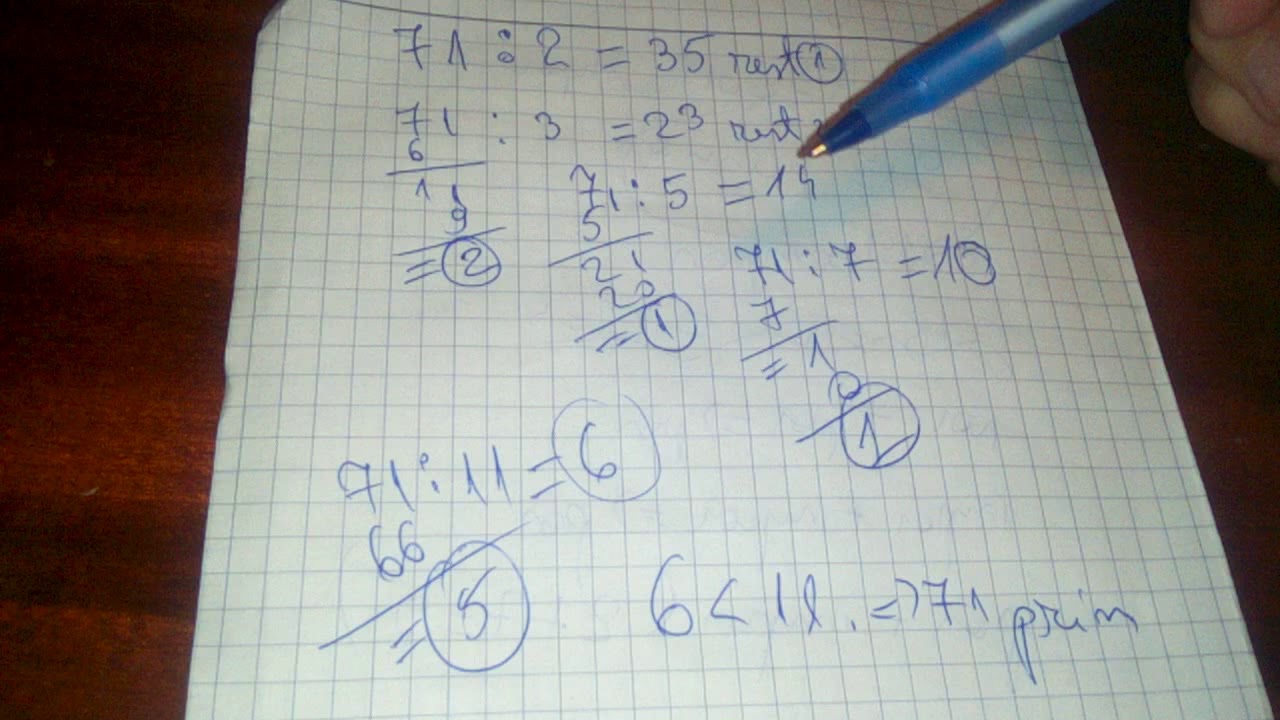 71 : 2 = 35 rest 1
71 : 3 = 23 rest
6
1
9
= 2
71 : 5 = 14
5
21
20
= 1
71 : 7 = 10
7
= 1
0
1
71 : 11 = 6
66
= 5
6 < 11. => 71 prim